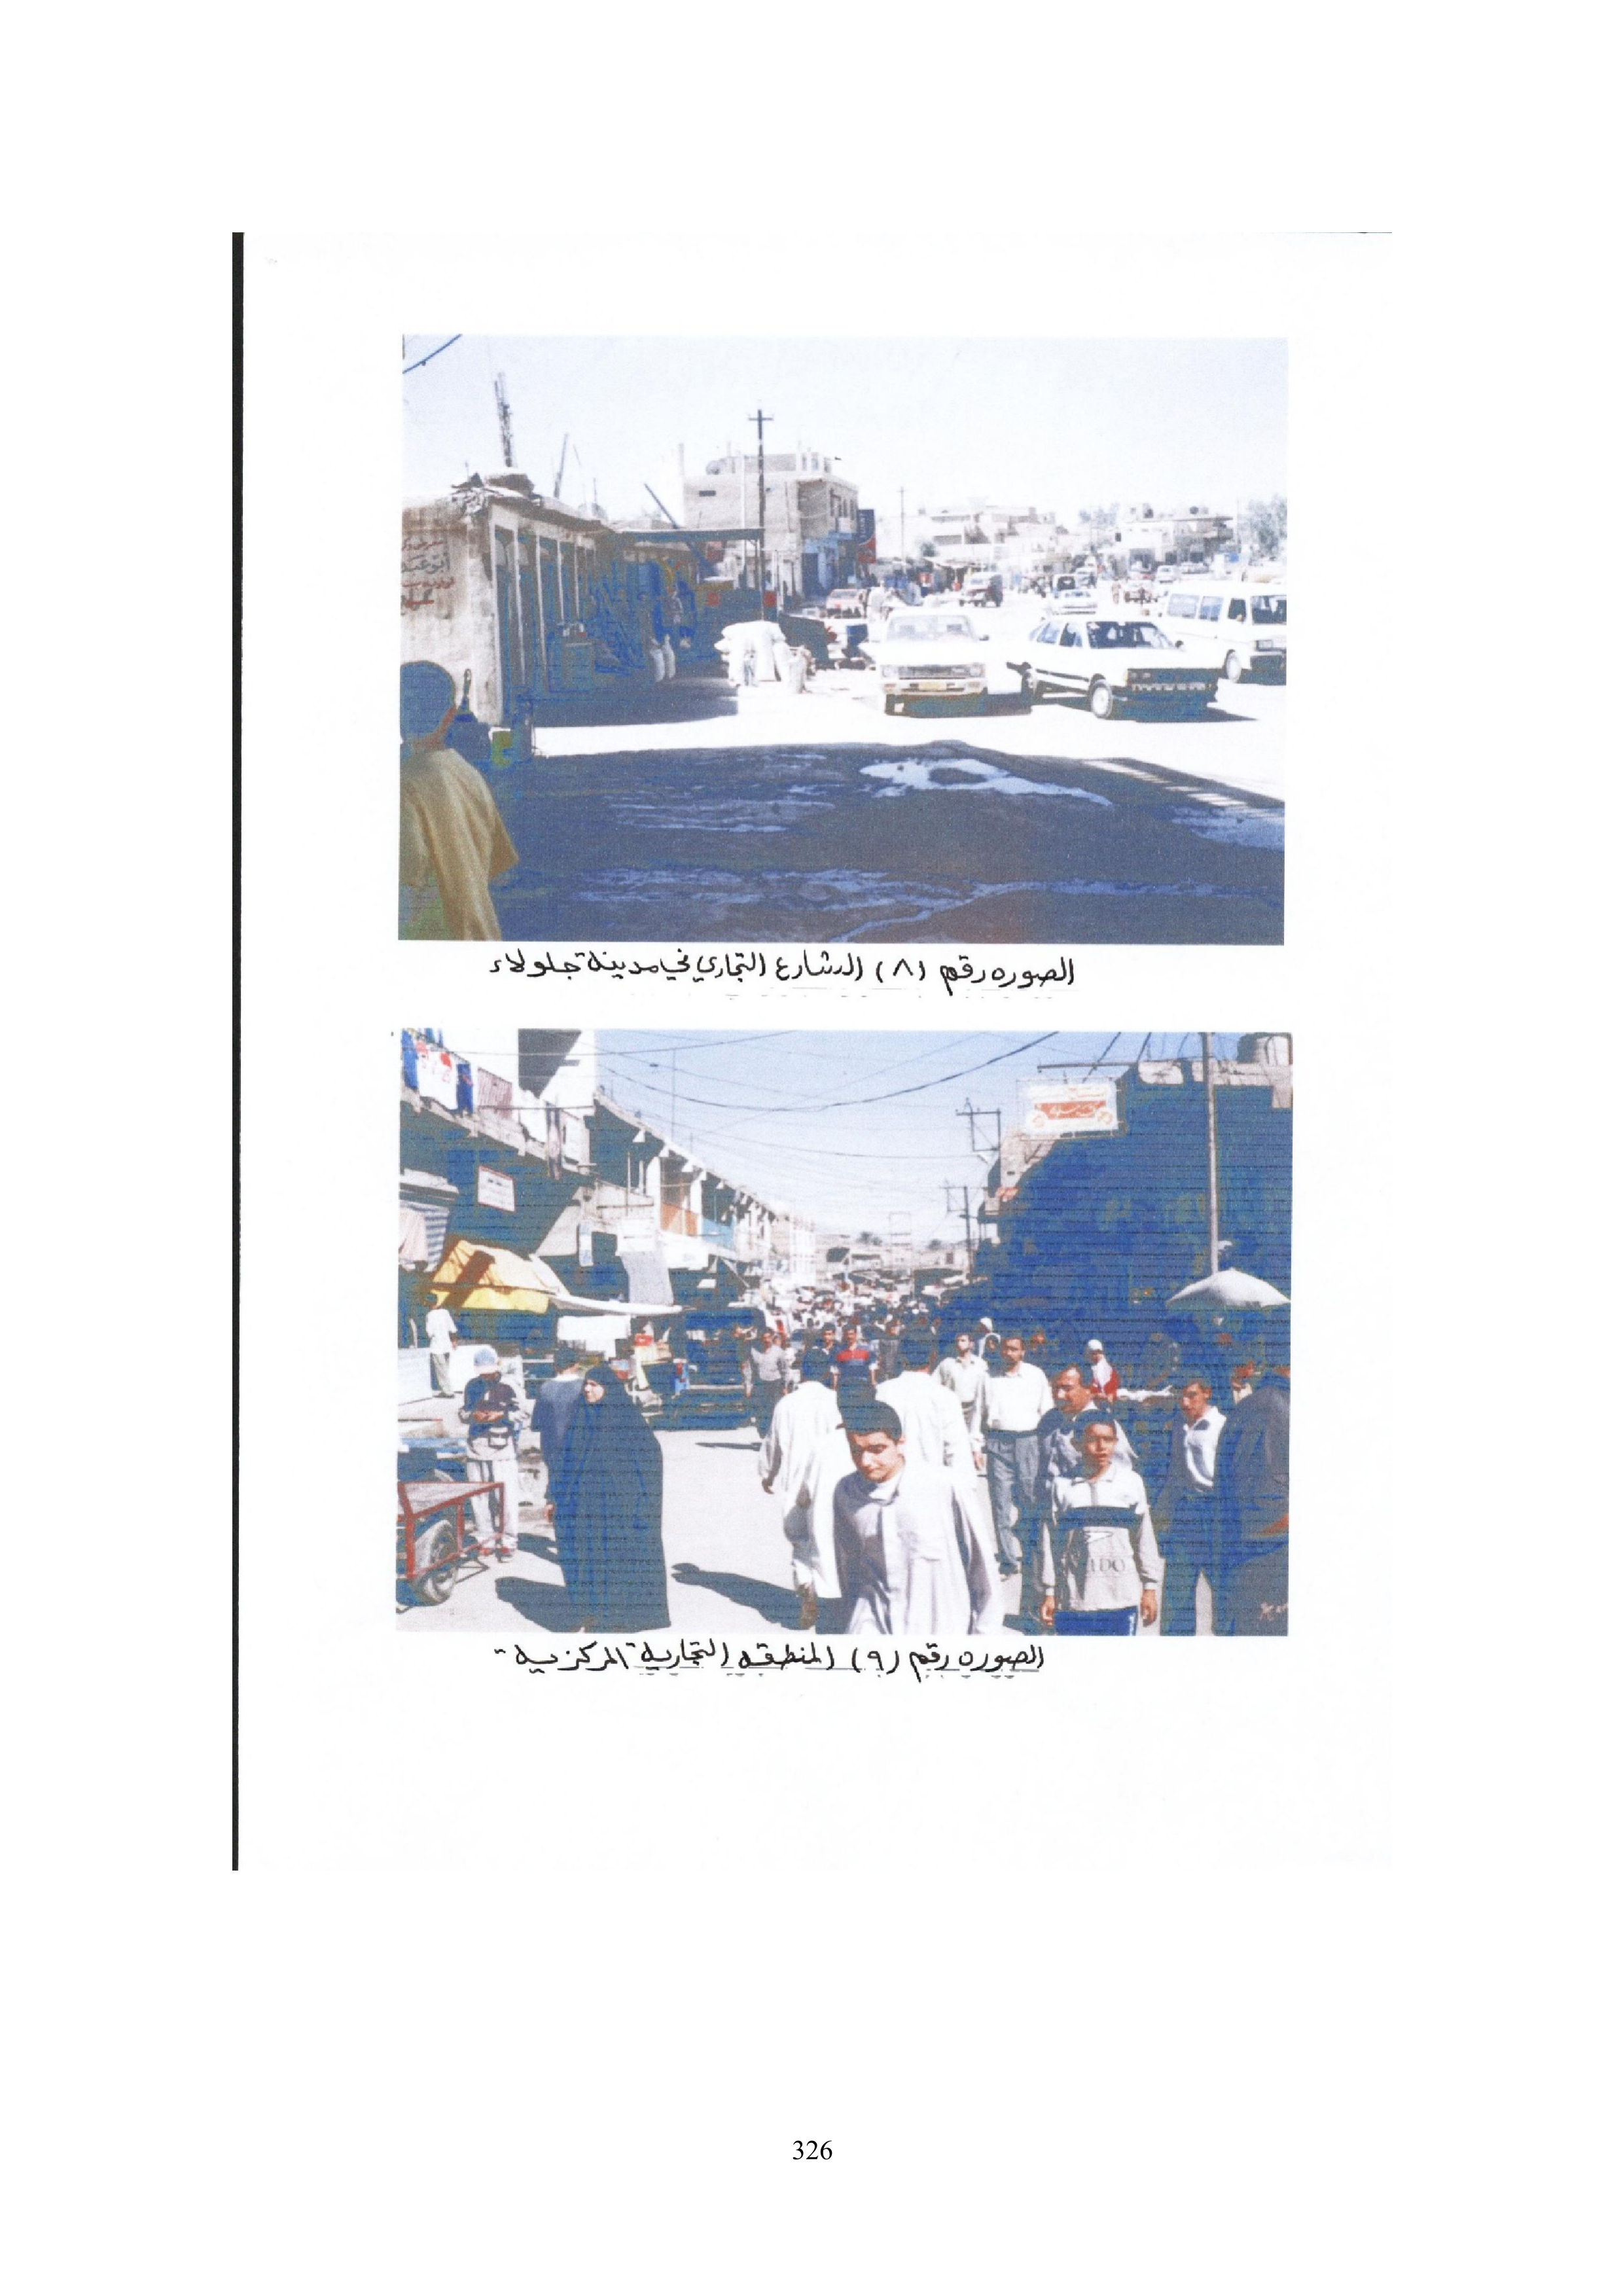 أبو عبد
الصوره رقم (٨) الشارع التجاري في مدينة جلولاء
IDO
الصوره رقم (٩) المنطقه التجارية المركزية
326